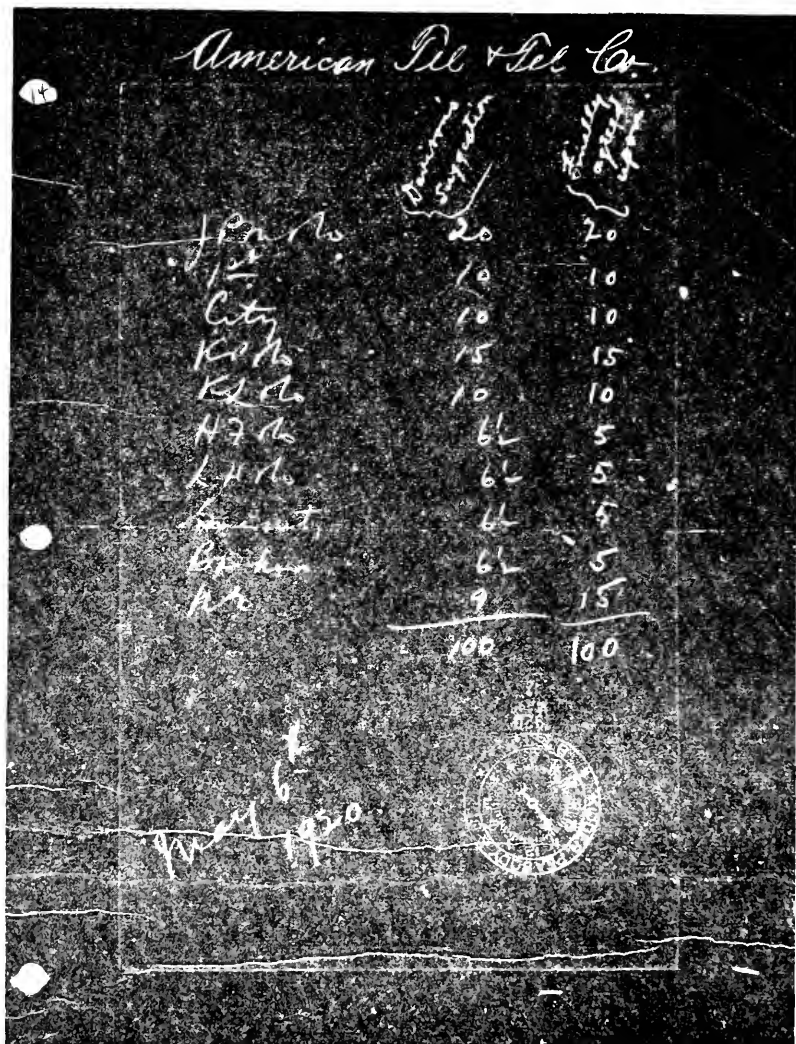 American Tel & Tel Co.
14
Davison's suggestion Finally agreed upon
J P M Co 20 20
1st 10 10
City 10 10
K P Co 15 15
K L Co 10 10
H F Co 6¼ 5
L H Co 6¼ 5
6¼ 5
6¼ 5
9 15
100 100
May 6th
1920
KIDDER PEABODY